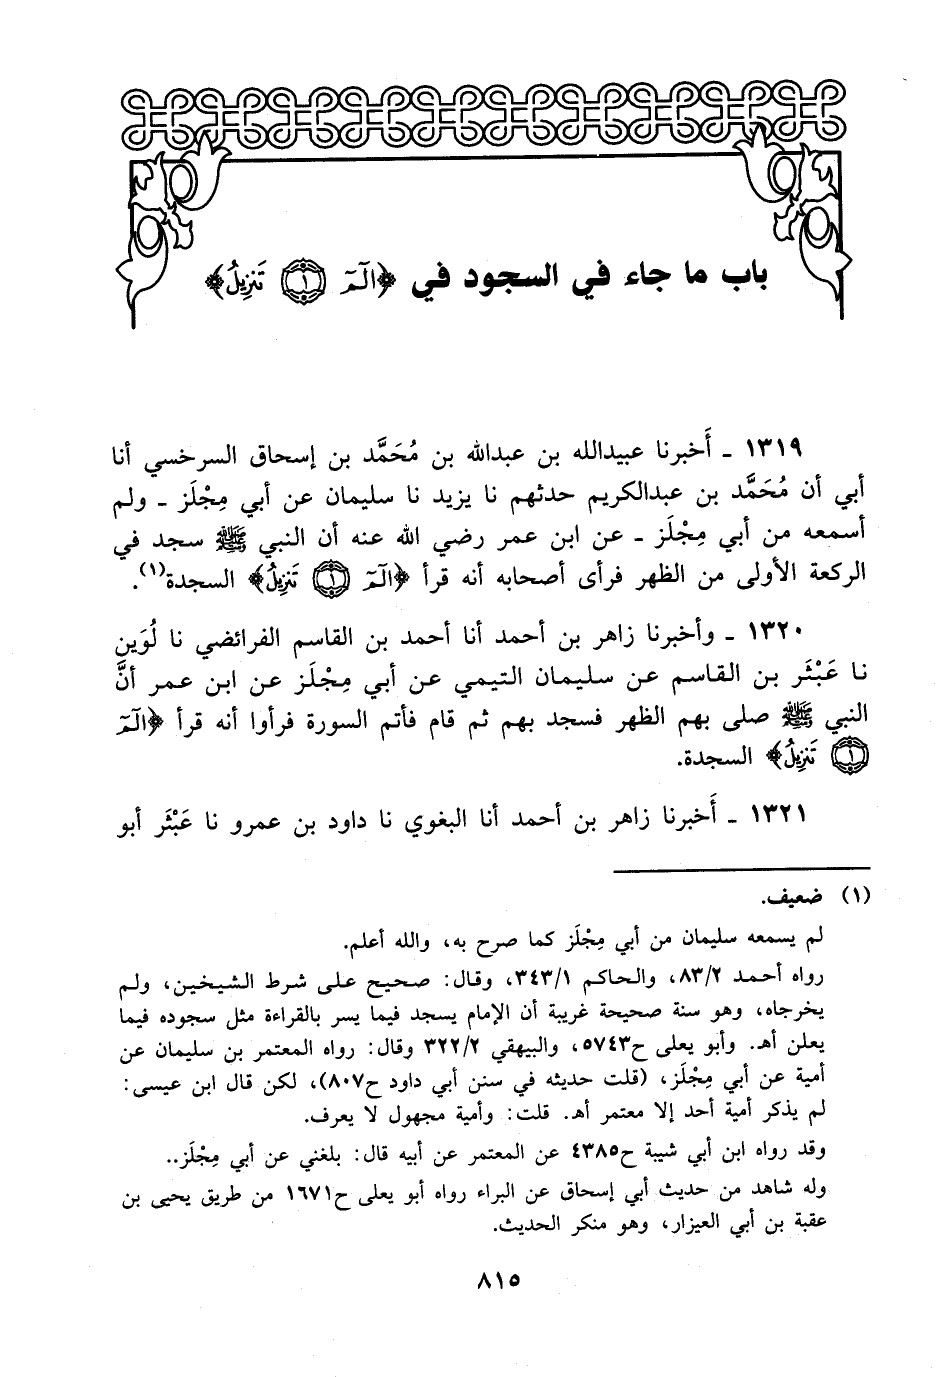 باب ما جاء في السجود في ﴿الٓمٓ ۝١ تَنزِيلُ﴾
١٣١٩ ـ أَخبرنا عبيدالله بن عبدالله بن مُحَمَّد بن إسحاق السرخسي أنا
أبي أن مُحَمَّد بن عبدالكريم حدثهم نا يزيد نا سليمان عن أبي مِجْلَز ـ ولم
أسمعه من أبي مِجْلَز ـ عن ابن عمر رضي الله عنه أن النبي ﷺ سجد في
الركعة الأولى من الظهر فرأى أصحابه أنه قرأ ﴿الٓمٓ ۝١ تَنزِيلُ﴾ السجدة(١).
١٣٢٠ ـ وأخبرنا زاهر بن أحمد أنا أحمد بن القاسم الفرائضي نا لُوَين
نا عَبْثَر بن القاسم عن سليمان التيمي عن أبي مِجْلَز عن ابن عمر أنَّ
النبي ﷺ صلى بهم الظهر فسجد بهم ثم قام فأتم السورة فرأوا أنه قرأ ﴿الٓمٓ
۝١ تَنزِيلُ﴾ السجدة.
١٣٢١ ـ أَخبرنا زاهر بن أحمد أنا البغوي نا داود بن عمرو نا عَبْثَر أبو
(١) ضعيف.
لم يسمعه سليمان من أبي مِجْلَز كما صرح به، والله أعلم.
رواه أحمد ٨٣/٢، والحاكم ٣٤٣/١، وقال: صحيح على شرط الشيخين، ولم
يخرجاه، وهو سنة صحيحة غريبة أن الإمام يسجد فيما يسر بالقراءة مثل سجوده فيما
يعلن أهـ. وأبو يعلى ح٥٧٤٣، والبيهقي ٣٢٢/٢ وقال: رواه المعتمر بن سليمان عن
أمية عن أبي مِجْلَز، (قلت حديثه في سنن أبي داود ح٨٠٧)، لكن قال ابن عيسى:
لم يذكر أمية أحد إلا معتمر أهـ. قلت: وأمية مجهول لا يعرف.
وقد رواه ابن أبي شيبة ح٤٣٨٥ عن المعتمر عن أبيه قال: بلغني عن أبي مِجْلَز..
وله شاهد من حديث أبي إسحاق عن البراء رواه أبو يعلى ح١٦٧١ من طريق يحيى بن
عقبة بن أبي العيزار، وهو منكر الحديث.
٨١٥